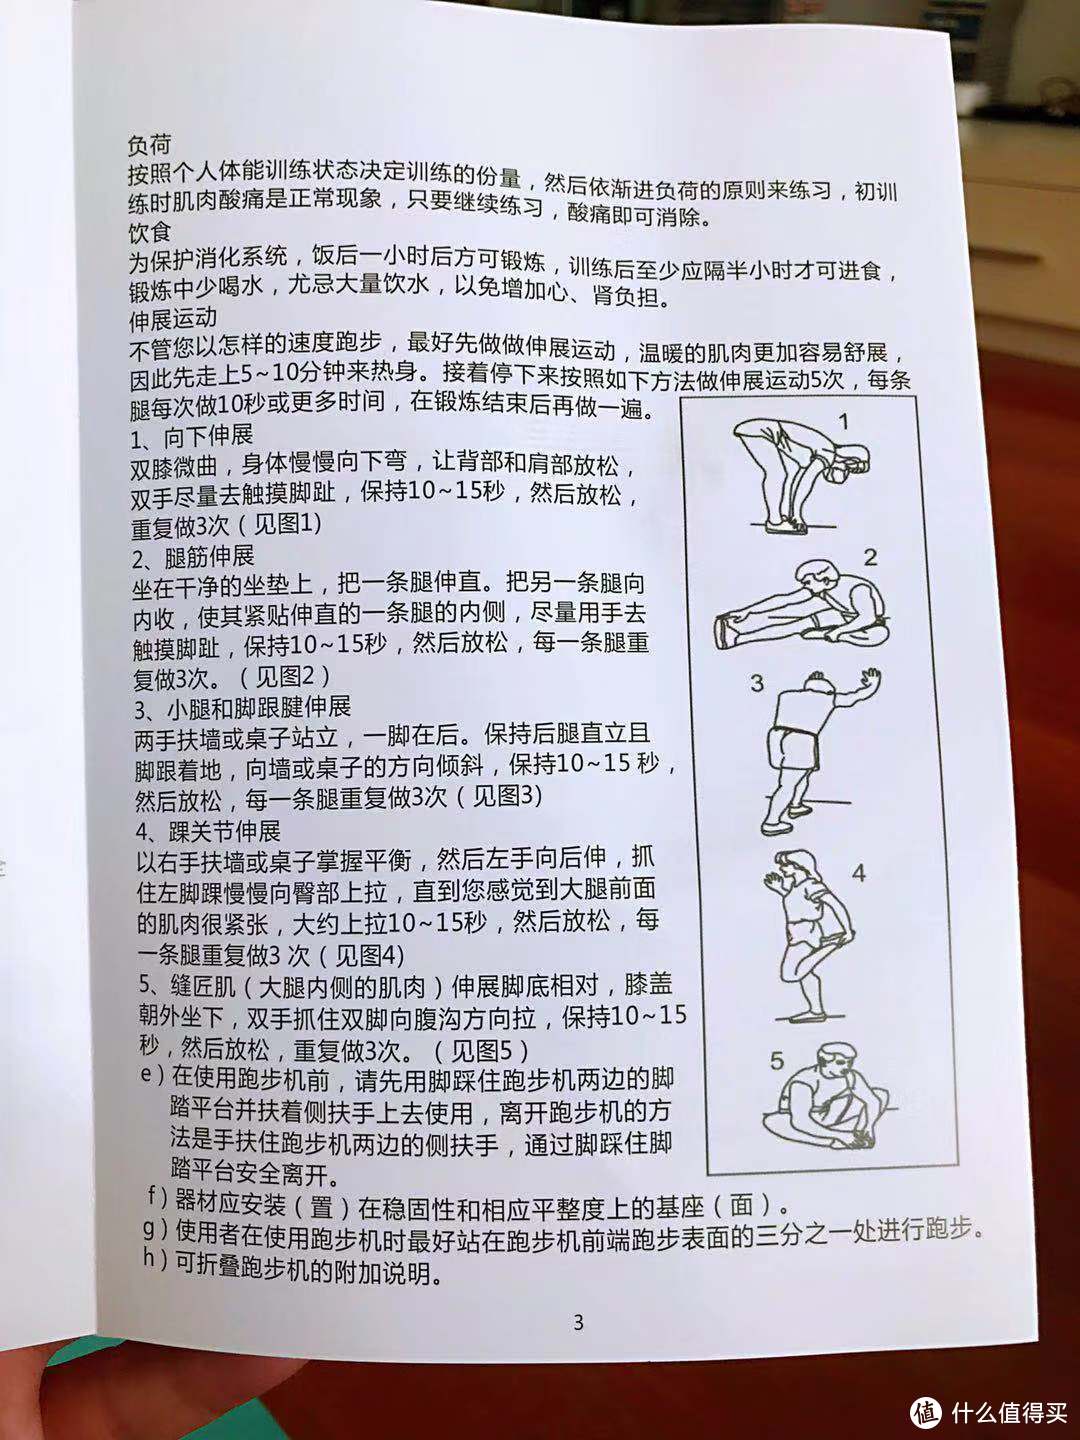 负荷
按照个人体能训练状态决定训练的份量，然后依渐进负荷的原则来练习，初训
练时肌肉酸痛是正常现象，只要继续练习，酸痛即可消除。
饮食
为保护消化系统，饭后一小时后方可锻炼，训练后至少应隔半小时才可进食，
锻炼中少喝水，尤忌大量饮水，以免增加心、肾负担。
伸展运动
不管您以怎样的速度跑步，最好先做做伸展运动，温暖的肌肉更加容易舒展，
因此先走上5~10分钟来热身。接着停下来按照如下方法做伸展运动5次，每条
腿每次做10秒或更多时间，在锻炼结束后再做一遍。
1、向下伸展
双膝微曲，身体慢慢向下弯，让背部和肩部放松，
双手尽量去触摸脚趾，保持10~15秒，然后放松，
重复做3次（见图1)
2、腿筋伸展
坐在干净的坐垫上，把一条腿伸直。把另一条腿向
内收，使其紧贴伸直的一条腿的内侧，尽量用手去
触摸脚趾，保持10~15秒，然后放松，每一条腿重
复做3次。（见图2）
3、小腿和脚跟腱伸展
两手扶墙或桌子站立，一脚在后。保持后腿直立且
脚跟着地，向墙或桌子的方向倾斜，保持10~15 秒，
然后放松，每一条腿重复做3次（见图3)
4、踝关节伸展
以右手扶墙或桌子掌握平衡，然后左手向后伸，抓
住左脚踝慢慢向臀部上拉，直到您感觉到大腿前面
的肌肉很紧张，大约上拉10~15秒，然后放松，每
一条腿重复做3 次（见图4)
5、缝匠肌（大腿内侧的肌肉）伸展脚底相对，膝盖
朝外坐下，双手抓住双脚向腹沟方向拉，保持10~15
秒，然后放松，重复做3次。（见图5）
e）在使用跑步机前，请先用脚踩住跑步机两边的脚
踏平台并扶着侧扶手上去使用，离开跑步机的方
法是手扶住跑步机两边的侧扶手，通过脚踩住脚
踏平台安全离开。
f）器材应安装（置）在稳固性和相应平整度上的基座（面）。
g）使用者在使用跑步机时最好站在跑步机前端跑步表面的三分之一处进行跑步。
h）可折叠跑步机的附加说明。
1
2
3
4
5
3
值 什么值得买